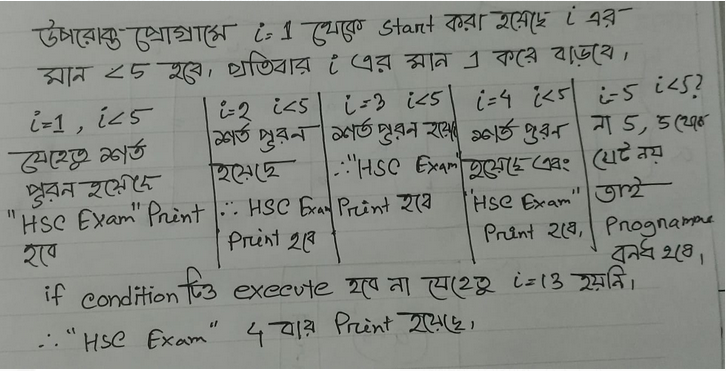 উপরোক্ত প্রোগ্রামে i=1 থেকে start করা হয়েছে i এর
মান <5 হবে, প্রতিবার i এর মান 1 করে বাড়বে,
i=1, i<5
যেহেতু শর্ত
পুরন হয়েছে
"HSC Exam" Print
হবে
i=2 i<5
শর্ত পুরন
হয়েছে
∴ HSC Exam
Print হবে
i=3 i<5
শর্ত পুরন হয়েছে
∴ "HSC Exam"
Print হবে
i=4 i<5
শর্ত পুরন
হয়েছে এবং
"HSC Exam"
Print হবে,
i=5 i<5?
না 5, 5 থেকে
ছোট নয়
তাই
Programme
বন্ধ হবে,
if condition টিও execute হবে না যেহেতু i=13 হয়নি,
∴ "HSC Exam" 4 বার Print হয়েছে,